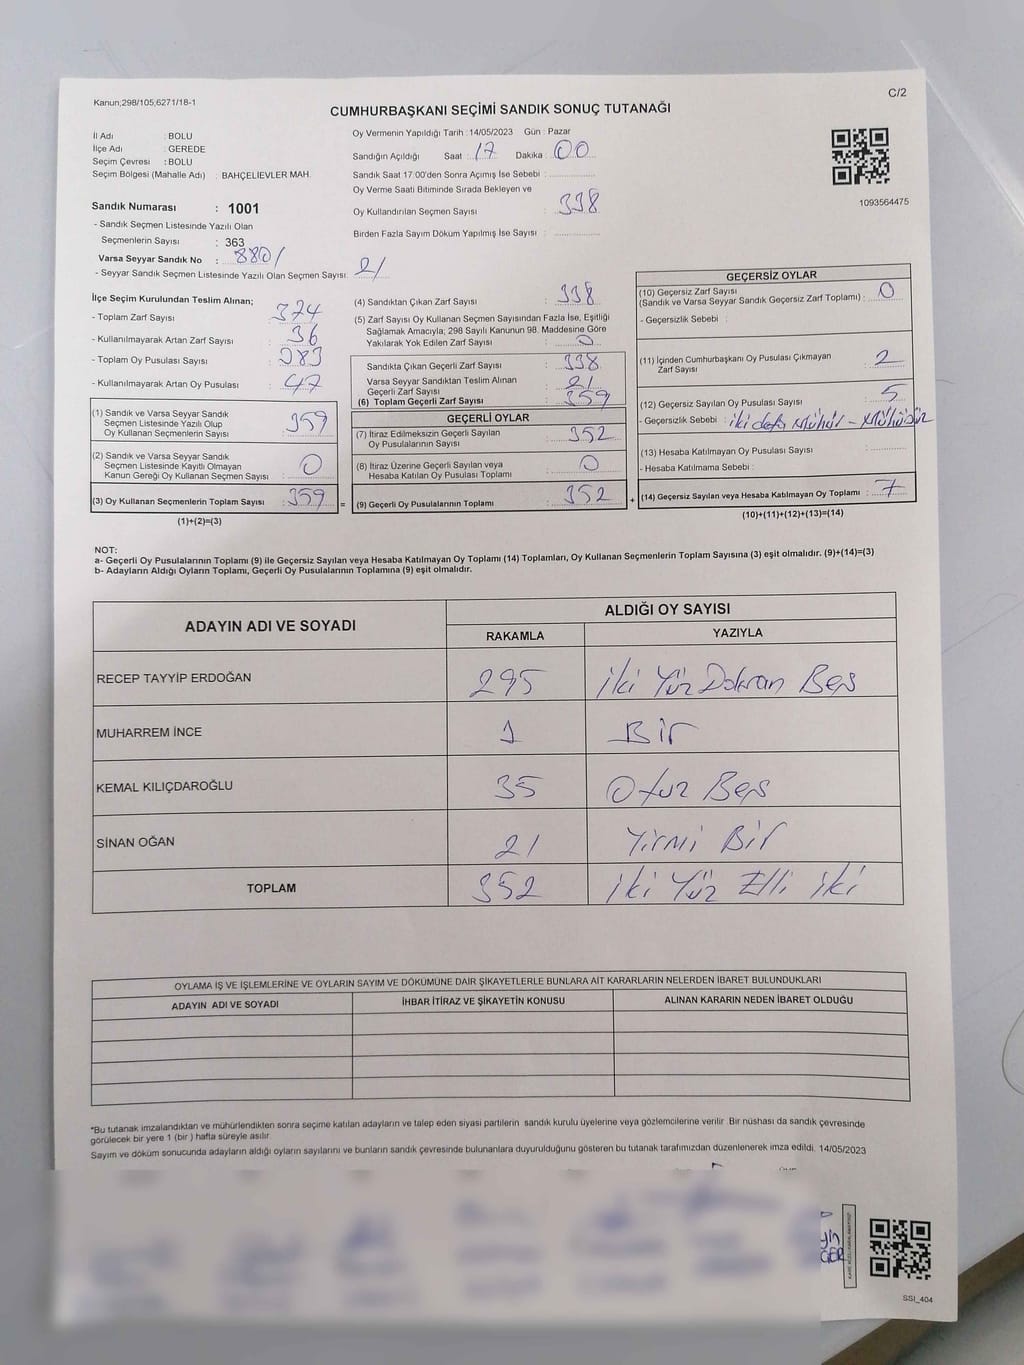 Kanun;298/105;6271/18-1
C/2
CUMHURBAŞKANI SEÇİMİ SANDIK SONUÇ TUTANAĞI
İl Adı : BOLU
İlçe Adı : GEREDE
Seçim Çevresi : BOLU
Seçim Bölgesi (Mahalle Adı) : BAHÇELİEVLER MAH.
Oy Vermenin Yapıldığı Tarih :14/05/2023 Gün : Pazar
Sandığın Açıldığı Saat : 17 Dakika : 00
Sandık Saat 17:00'den Sonra Açımış İse Sebebi :
Oy Verme Saati Bitiminde Sırada Bekleyen ve
Oy Kullandırılan Seçmen Sayısı : 338
Birden Fazla Sayım Döküm Yapılmış İse Sayısı :
1093564475
Sandık Numarası : 1001
- Sandık Seçmen Listesinde Yazılı Olan
Seçmenlerin Sayısı : 363
Varsa Seyyar Sandık No : 8801
- Seyyar Sandık Seçmen Listesinde Yazılı Olan Seçmen Sayısı: 21
İlçe Seçim Kurulundan Teslim Alınan;
- Toplam Zarf Sayısı : 374
- Kullanılmayarak Artan Zarf Sayısı : 36
- Toplam Oy Pusulası Sayısı : 383
- Kullanılmayarak Artan Oy Pusulası : 47
(1) Sandık ve Varsa Seyyar Sandık
Seçmen Listesinde Yazılı Olup
Oy Kullanan Seçmenlerin Sayısı : 359
(2) Sandık ve Varsa Seyyar Sandık
Seçmen Listesinde Kayıtlı Olmayan
Kanun Gereği Oy Kullanan Seçmen Sayısı : 0
(3) Oy Kullanan Seçmenlerin Toplam Sayısı : 359 =
(1)+(2)=(3)
(4) Sandıktan Çıkan Zarf Sayısı : 338
(5) Zarf Sayısı Oy Kullanan Seçmen Sayısından Fazla İse, Eşitliği
Sağlamak Amacıyla; 298 Sayılı Kanunun 98. Maddesine Göre
Yakılarak Yok Edilen Zarf Sayısı : 0
Sandıkta Çıkan Geçerli Zarf Sayısı : 338
Varsa Seyyar Sandıktan Teslim Alınan
Geçerli Zarf Sayısı : 21
(6) Toplam Geçerli Zarf Sayısı : 359
GEÇERLİ OYLAR
(7) İtiraz Edilmeksizin Geçerli Sayılan
Oy Pusulalarının Sayısı : 352
(8) İtiraz Üzerine Geçerli Sayılan veya
Hesaba Katılan Oy Pusulası Toplamı : 0
(9) Geçerli Oy Pusulalarının Toplamı : 352 +
GEÇERSİZ OYLAR
(10) Geçersiz Zarf Sayısı
(Sandık ve Varsa Seyyar Sandık Geçersiz Zarf Toplamı) : 0
- Geçersizlik Sebebi :
(11) İçinden Cumhurbaşkanı Oy Pusulası Çıkmayan
Zarf Sayısı : 2
(12) Geçersiz Sayılan Oy Pusulası Sayısı : 5
- Geçersizlik Sebebi : iki defa Mühür -
(13) Hesaba Katılmayan Oy Pusulası Sayısı :
- Hesaba Katılmama Sebebi :
(14) Geçersiz Sayılan veya Hesaba Katılmayan Oy Toplamı : 7
(10)+(11)+(12)+(13)=(14)
NOT:
a- Geçerli Oy Pusulalarının Toplamı (9) ile Geçersiz Sayılan veya Hesaba Katılmayan Oy Toplamı (14) Toplamları, Oy Kullanan Seçmenlerin Toplam Sayısına (3) eşit olmalıdır. (9)+(14)=(3)
b- Adayların Aldığı Oyların Toplamı, Geçerli Oy Pusulalarının Toplamına (9) eşit olmalıdır.
ADAYIN ADI VE SOYADI ALDIĞI OY SAYISI
RAKAMLA YAZIYLA
RECEP TAYYİP ERDOĞAN 295 İki Yüz Doksan Beş
MUHARREM İNCE 1 Bir
KEMAL KILIÇDAROĞLU 35 Otuz Beş
SİNAN OĞAN 21 Yirmi Bir
TOPLAM 352 İki Yüz Elli İki
OYLAMA İŞ VE İŞLEMLERİNE VE OYLARIN SAYIM VE DÖKÜMÜNE DAİR ŞİKAYETLERLE BUNLARA AİT KARARLARIN NELERDEN İBARET BULUNDUKLARI
ADAYIN ADI VE SOYADI İHBAR İTİRAZ VE ŞİKAYETİN KONUSU ALINAN KARARIN NEDEN İBARET OLDUĞU
*Bu tutanak imzalandıktan ve mühürlendikten sonra seçime katılan adayların ve talep eden siyasi partilerin sandık kurulu üyelerine veya gözlemcilerine verilir. Bir nüshası da sandık çevresinde
görülecek bir yere 1 (bir ) hafta süreyle asılır.
Sayım ve döküm sonucunda adayların aldığı oyların sayılarını ve bunların sandık çevresinde bulunanlara duyurulduğunu gösteren bu tutanak tarafımızdan düzenlenerek imza edildi. 14/05/2023
SSI_404